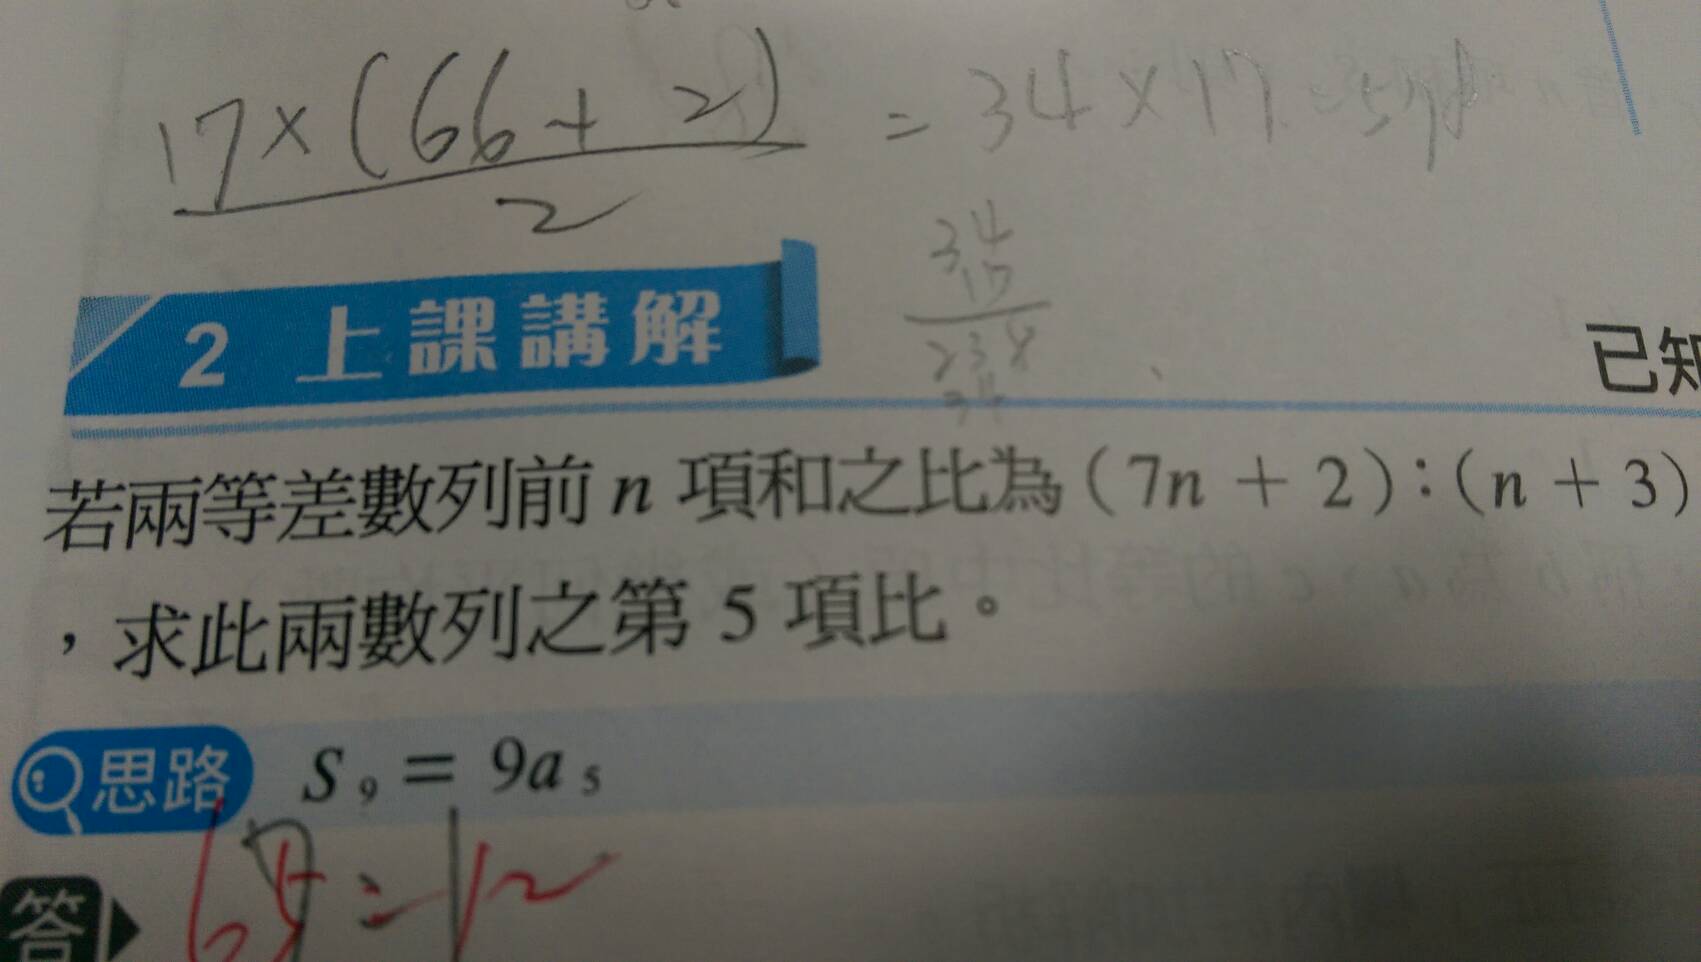 17×(66+2)/2 = 34×17 = 578
34
17
238
34
2 上課講解
已知
若兩等差數列前 n 項和之比為（7n + 2）:（n + 3）
，求此兩數列之第 5 項比。
思路 S₉ = 9a₅
答 65 = 12